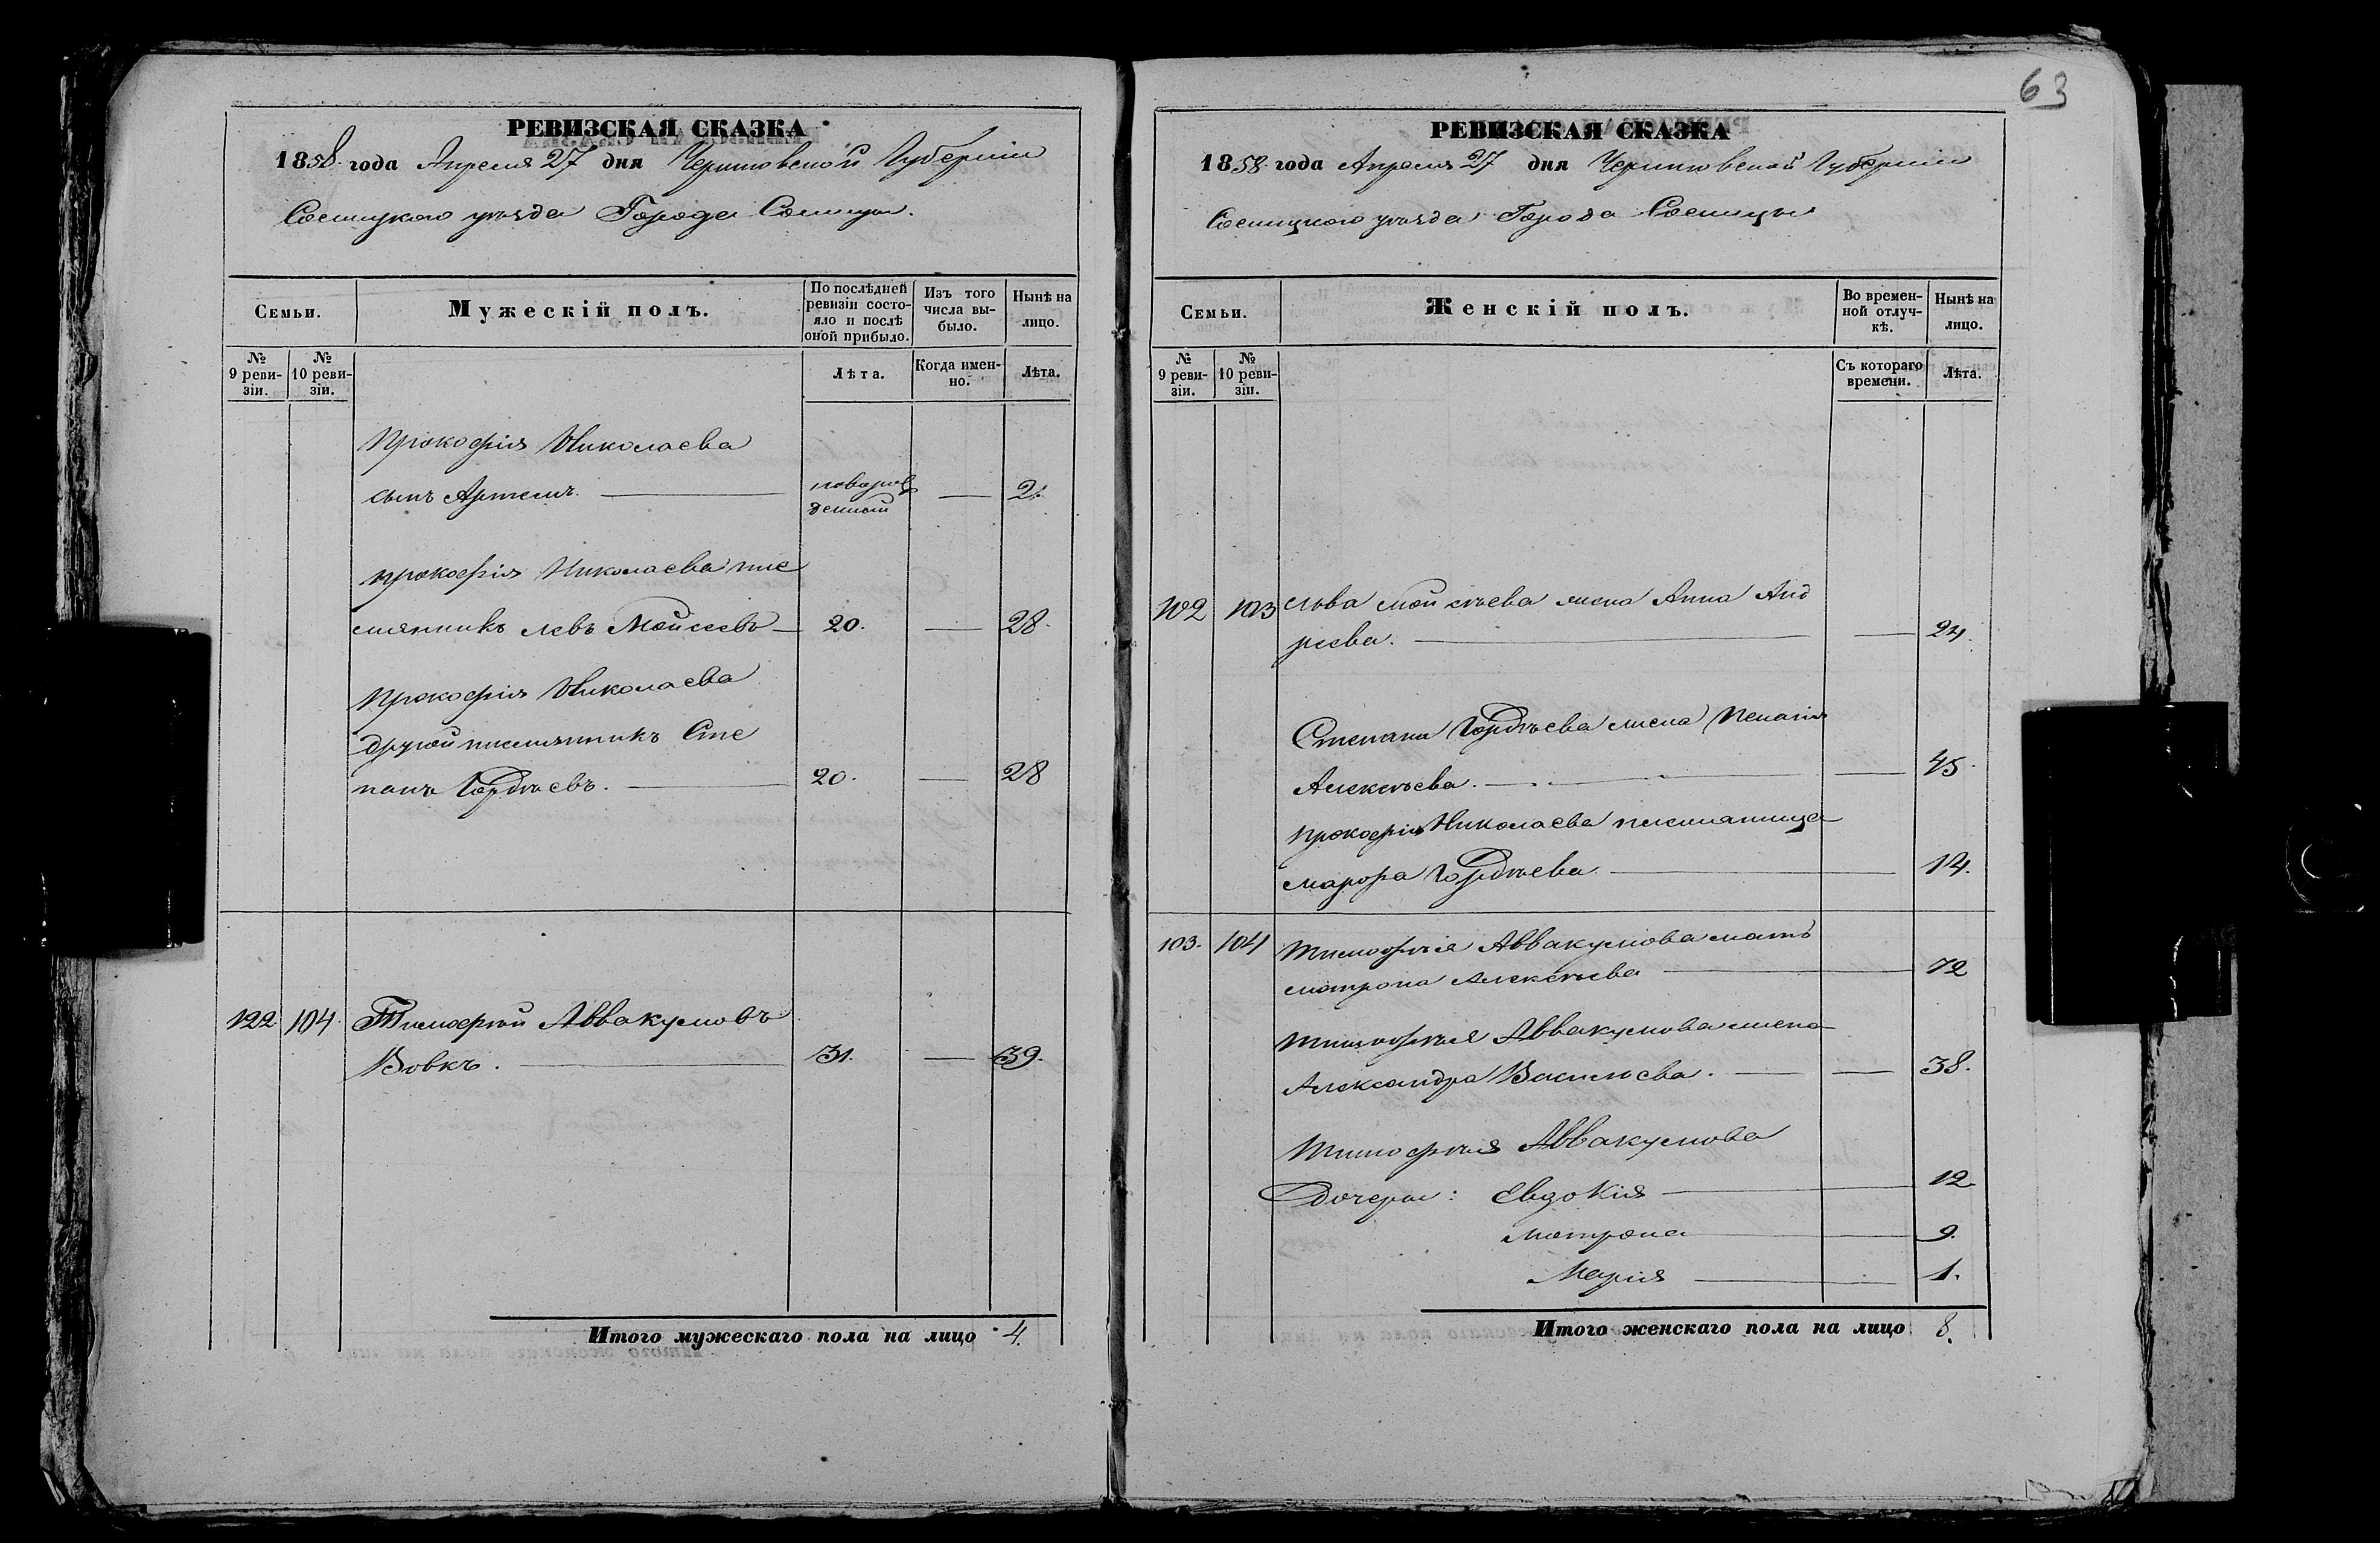 63
РЕВИЗСКАЯ СКАЗКА
1858 года Апреля 27 дня Черниговской Губерніи
Сосницкого уѣзда Города Сосницы.
Семьи.
Мужескій полъ.
По послѣдней ревизіи состояло и послѣ оной прибыло.
Изъ того числа выбыло.
Нынѣ на лицо.
№ 9 ревизіи.
№ 10 ревизіи.
Лѣта.
Когда именно.
Лѣта.
Прокофія Николаева
сынъ Артемъ. — новорож
денный — 2.
Прокофія Николаева пле
мянникъ Левъ Мойсеевъ — 20. — 28.
Прокофія Николаева
другой племянникъ Сте
панъ Гордѣевъ. — 20. — 28
122 104. Тимофѣй Аввакумовъ
Вовкъ. — 31. — 39.
Итого мужескаго пола на лицо 4.
РЕВИЗСКАЯ СКАЗКА
1858 года Апреля 27 дня Черниговской Губерніи
Сосницкого уѣзда Города Сосницы
Семьи.
Женскій полъ.
Во временной отлучкѣ.
Нынѣ на лицо.
№ 9 ревизіи.
№ 10 ревизіи.
Съ котораго времени.
Лѣта.
102 103 Льва Мойсѣева жена Анна Анд
реева. — 24.
Степана Гордѣева жена Пелагія
Алексѣева. — 45.
Прокофія Николаева племянница
Марфа Гордѣева — 14.
103. 104 Тимофѣя Аввакумова мать
Матрона Алексѣева — 72
Тимофѣя Аввакумова жена
Александра Васильева. — 38.
Тимофѣя Аввакумова
Дочери: Евдокія — 12
Матрона — 9.
Марія — 1.
Итого женскаго пола на лицо 8.